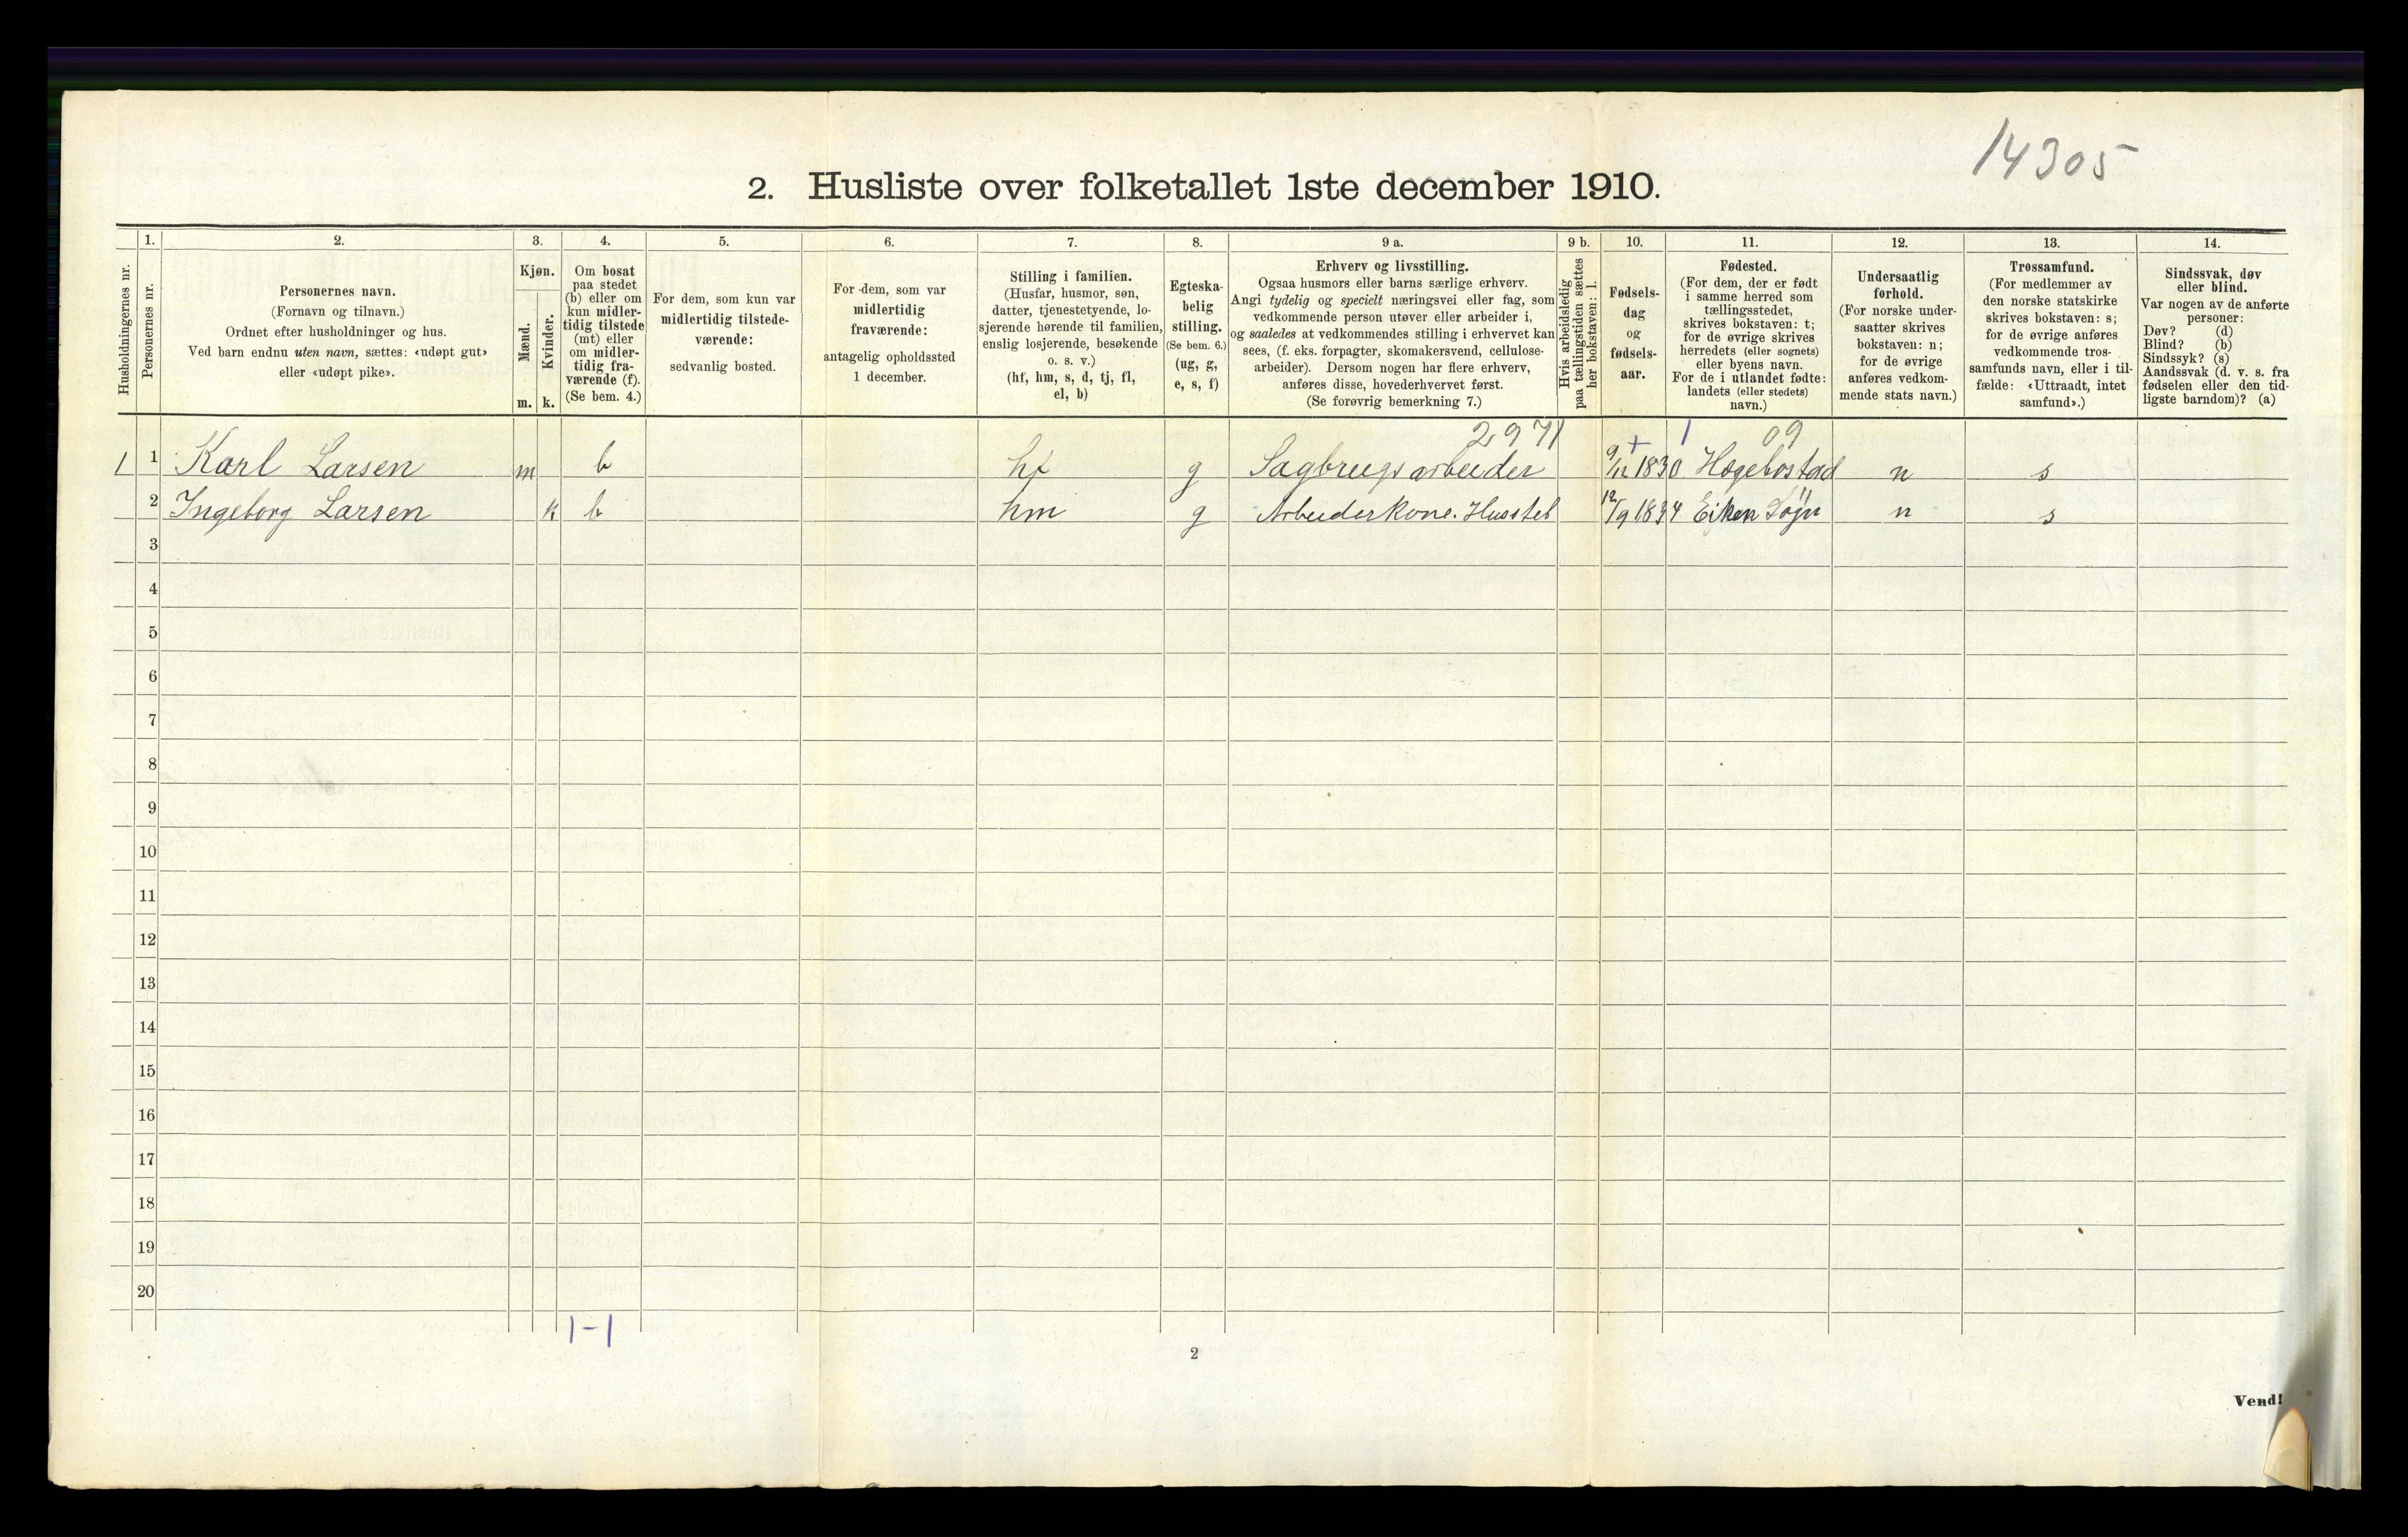 14305
2. Husliste over folketallet 1ste december 1910.
Husholdningernes nr.
1.
Personernes nr.
2.
Personernes navn.
(Fornavn og tilnavn.)
Ordnet efter husholdninger og hus.
Ved barn endnu uten navn, sættes: «udøpt gut»
eller «udøpt pike».
3.
Kjøn.
Mænd.
Kvinder.
m. k.
4.
Om bosat
paa stedet
(b) eller om
kun midler-
tidig tilstede
(mt) eller
om midler-
tidig fra-
værende (f).
(Se bem. 4.)
5.
For dem, som kun var
midlertidig tilstede-
værende:
sedvanlig bosted.
6.
For dem, som var
midlertidig
fraværende:
antagelig opholdssted
1 december.
7.
Stilling i familien.
(Husfar, husmor, søn,
datter, tjenestetyende, lo-
sjerende hørende til familien,
enslig losjerende, besøkende
o. s. v.)
(hf, hm, s, d, tj, fl,
el, b)
8.
Egteska-
belig
stilling.
(Se bem. 6.)
(ug, g,
e, s, f)
9 a.
Erhverv og livsstilling.
Ogsaa husmors eller barns særlige erhverv.
Angi tydelig og specielt næringsvei eller fag, som
vedkommende person utøver eller arbeider i,
og saaledes at vedkommendes stilling i erhvervet kan
sees, (f. eks. forpagter, skomakersvend, cellulose-
arbeider). Dersom nogen har flere erhverv,
anføres disse, hovederhvervet først.
(Se forøvrig bemerkning 7.)
9 b.
Hvis arbeidsledig
paa tællingstiden sættes
her bokstaven: l.
10.
Fødsels-
dag
og
fødsels-
aar.
11.
Fødested.
(For dem, der er født
i samme herred som
tællingsstedet,
skrives bokstaven: t;
for de øvrige skrives
herredets (eller sognets)
eller byens navn.
For de i utlandet fødte:
landets (eller stedets)
navn.)
12.
Undersaatlig
forhold.
(For norske under-
saatter skrives
bokstaven: n;
for de øvrige
anføres vedkom-
mende stats navn.)
13.
Trossamfund.
(For medlemmer av
den norske statskirke
skrives bokstaven: s;
for de øvrige anføres
vedkommende tros-
samfunds navn, eller i til-
fælde: «Uttraadt, intet
samfund».)
14.
Sindssvak, døv
eller blind.
Var nogen av de anførte
personer:
Døv? (d)
Blind? (b)
Sindssyk? (s)
Aandssvak (d. v. s. fra
fødselen eller den tid-
ligste barndom)? (a)
2971 + 1 09
1 1 Karl Larsen m b hf g Sagbrugsarbeider 9/12 1830 Hægebostad n s
2 Ingeborg Larsen k b hm g Arbeiderkone. Husstel 12/9 1834 Eiken n s
3
4
5
6
7
8
9
10
11
12
13
14
15
16
17
18
19
20
1-1
2
Vend!